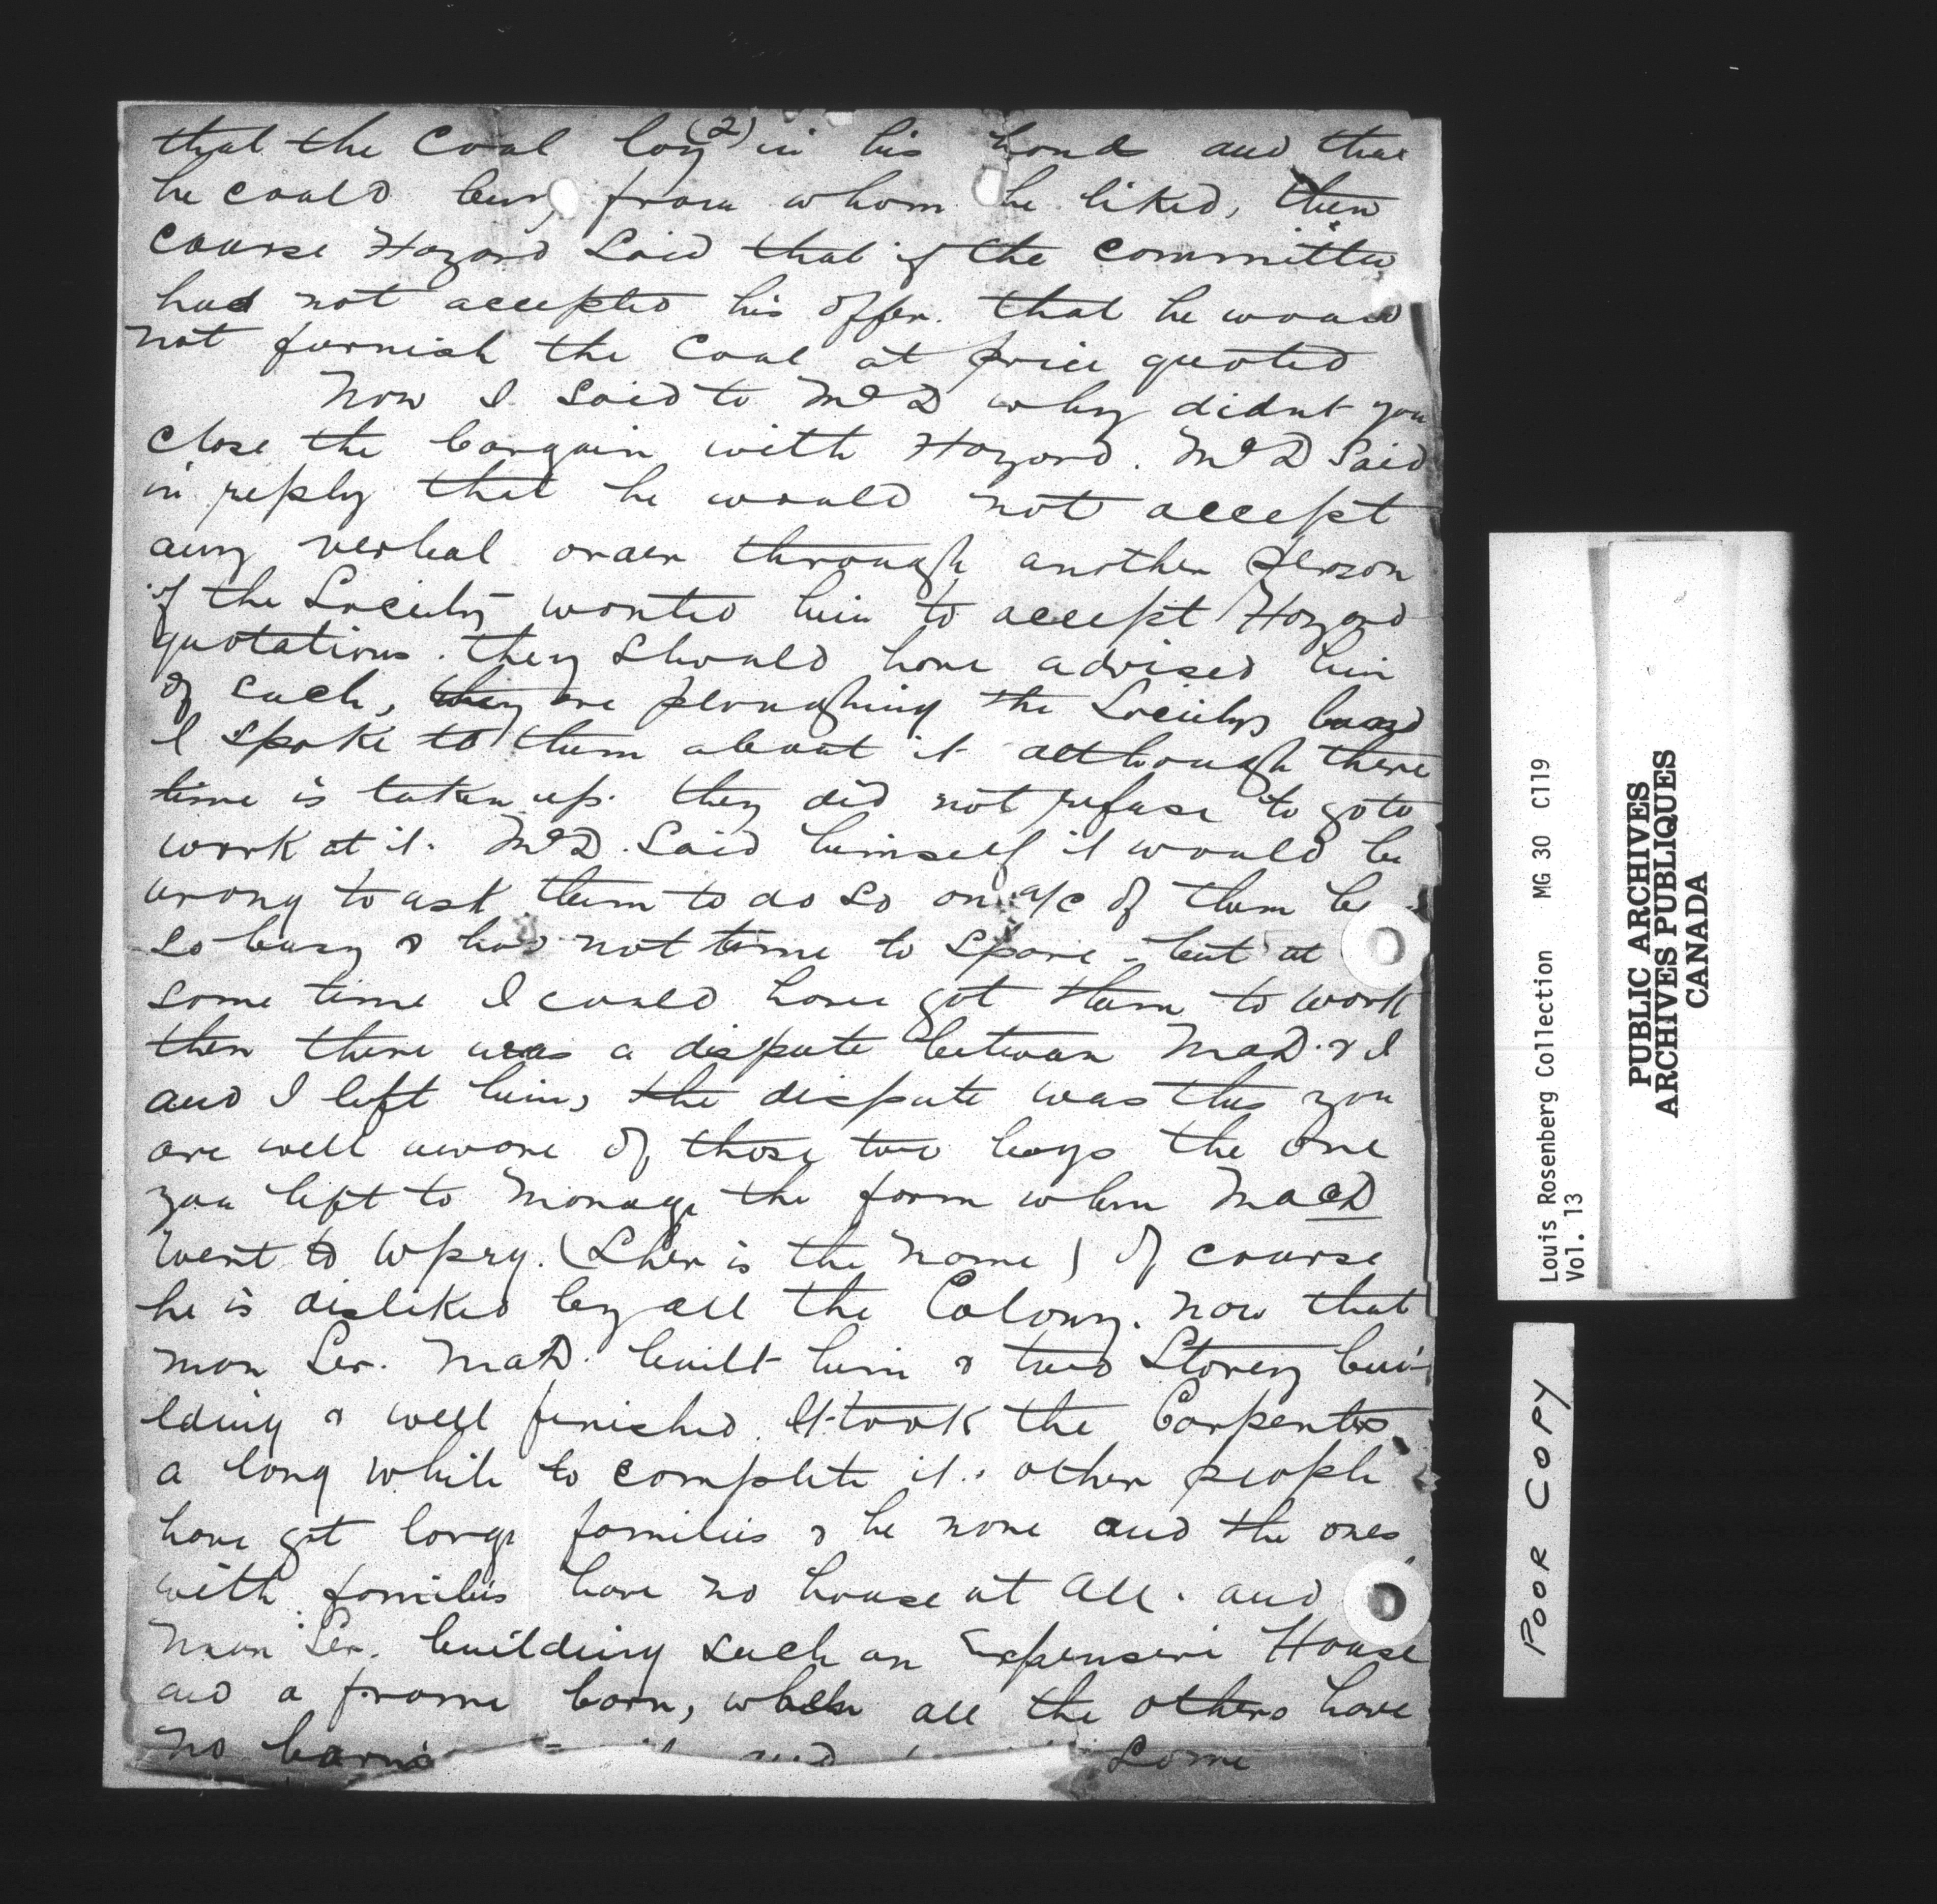 (2)
that the Coal lay in his hands and that
he could buy from whom he liked, then
course Hazard Said that if the committee
had not accepted his offer. that he would
not furnish the Coal at price quoted
Now I Said to McD why didnt you
close the bargain with Hazard. McD Said
in reply that he would not accept
any verbal order through another person
if the Society wanted him to accept Hazard
quotations. they should have advised him
of such, they are ploughing the Societys land
I spoke to them about it although there
time is taken up. they did not refuse to go to
work at it. McD. Said himself it would be
wrong to ask them to do so on a/c of them
so busy & had not time to spare - but at
some time I could have got them to work
then there was a dispute between MaD. & I
and I left him, the dispute was this you
are well aware of those two boys the one
you left to manage the farm when MacD
went to Wpeg. (Sher is the name) of course
he is disliked by all the Colony. now that
man Ser. MaD. built him a two Storey bui-
lding & well finished. It took the Carpenters
a long while to complete it. other people
have got large families & he none and the ones
with families have no house at all. and
man Ser. building such an Expensive House
and a frame barn, when all the others have
no barns and Some
Louis Rosenberg Collection MG 30 C119
Vol. 13
PUBLIC ARCHIVES
ARCHIVES PUBLIQUES
CANADA
POOR COPY